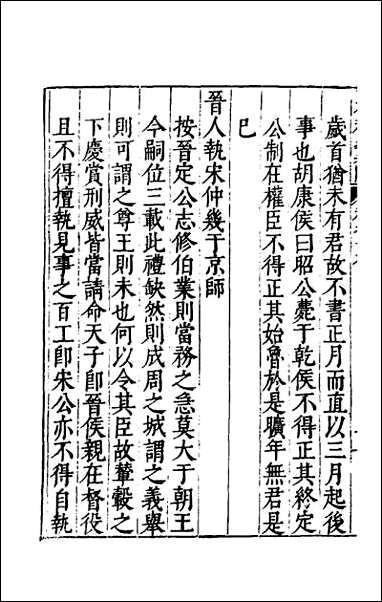 歲首猶未有君故不書正月而直以三月起後
事也胡康侯曰昭公薨于乾侯不得正其終定
公制在權臣不得正其始魯於是曠年無君是
已
晉人執宋仲幾于京師
按晉定公志修伯業則當務之急莫大于朝王
今嗣位三載此禮缺然則成周之城謂之義舉
則可謂之尊王則未也何以令其臣故輦轂之
下慶賞刑威皆當請命天子即晉侯親在督役
且不得擅執見事之百工即宋公亦不得自執